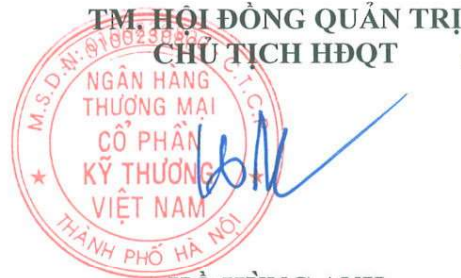 TM. HỘI ĐỒNG QUẢN TRỊ
CHỦ TỊCH HĐQT
NGÂN HÀNG
THƯƠNG MẠI
CỔ PHẦN
KỸ THƯƠNG
VIỆT NAM
THÀNH PHỐ HÀ NỘI